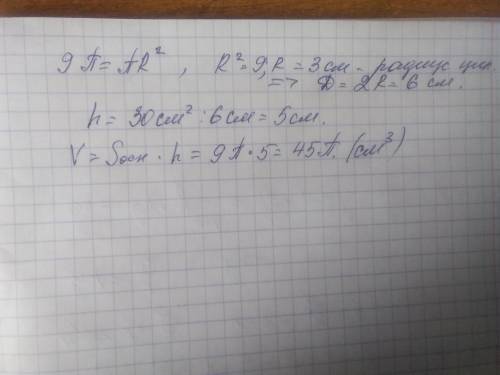 9π = πR², R² = 9, R = 3 см - радиус цил.
=> D = 2R = 6 см.
h = 30 см² : 6 см = 5 см.
V = Sосн · h = 9π · 5 = 45π. (см³)